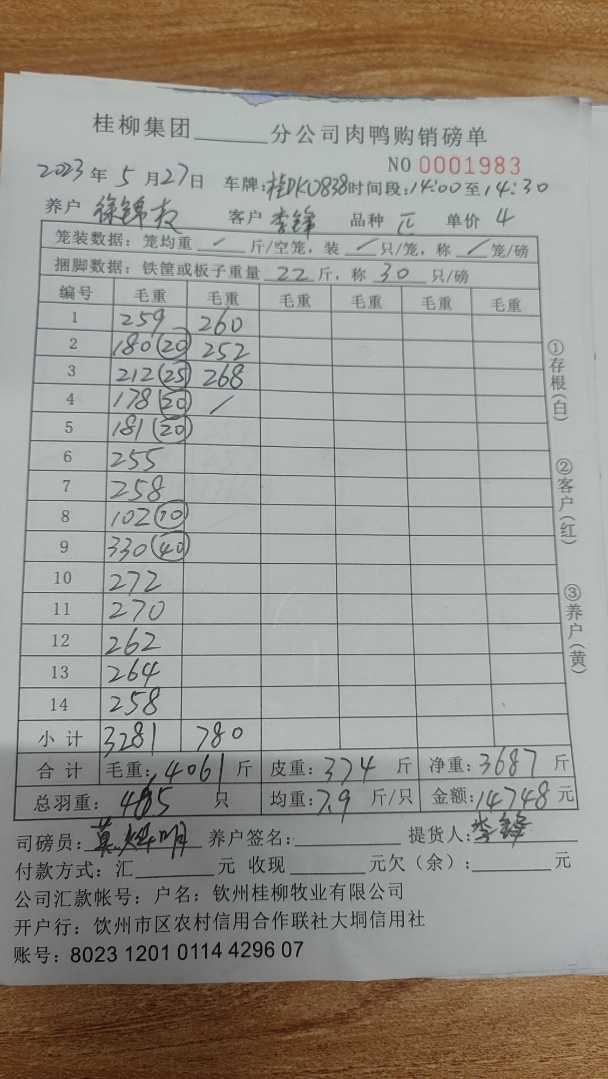 桂柳集团______分公司肉鸭购销磅单
NO 0001983
2023年5月27日 车牌:桂DK0838时间段:14:00至14:30
养户 徐锦枝 客户 李锋 品种 单价 4
笼装数据: 笼均重 / 斤/空笼, 装 / 只/笼, 称 / 笼/磅
捆脚数据: 铁筐或板子重量 22 斤, 称 30 只/磅
编号 毛重 毛重 毛重 毛重 毛重 毛重
1 259 260
2 180(20) 252
3 212(25) 268
4 178(20) /
5 181(20)
6 255
7 258
8 102(10)
9 330(40)
10 272
11 270
12 262
13 264
14 258
小计 3281 780
合计 毛重: 4061 斤 皮重: 374 斤 净重: 3687 斤
总羽重: 465 只 均重: 7.9 斤/只 金额: 14748 元
司磅员: 养户签名: 提货人: 李锋
付款方式: 汇______元 收现______元欠(余):______元
公司汇款帐号: 户名: 钦州桂柳牧业有限公司
开户行: 饮州市区农村信用合作联社大垌信用社
账号: 8023 1201 0114 4296 07
①存根(白)
②客户(红)
③养户(黄)